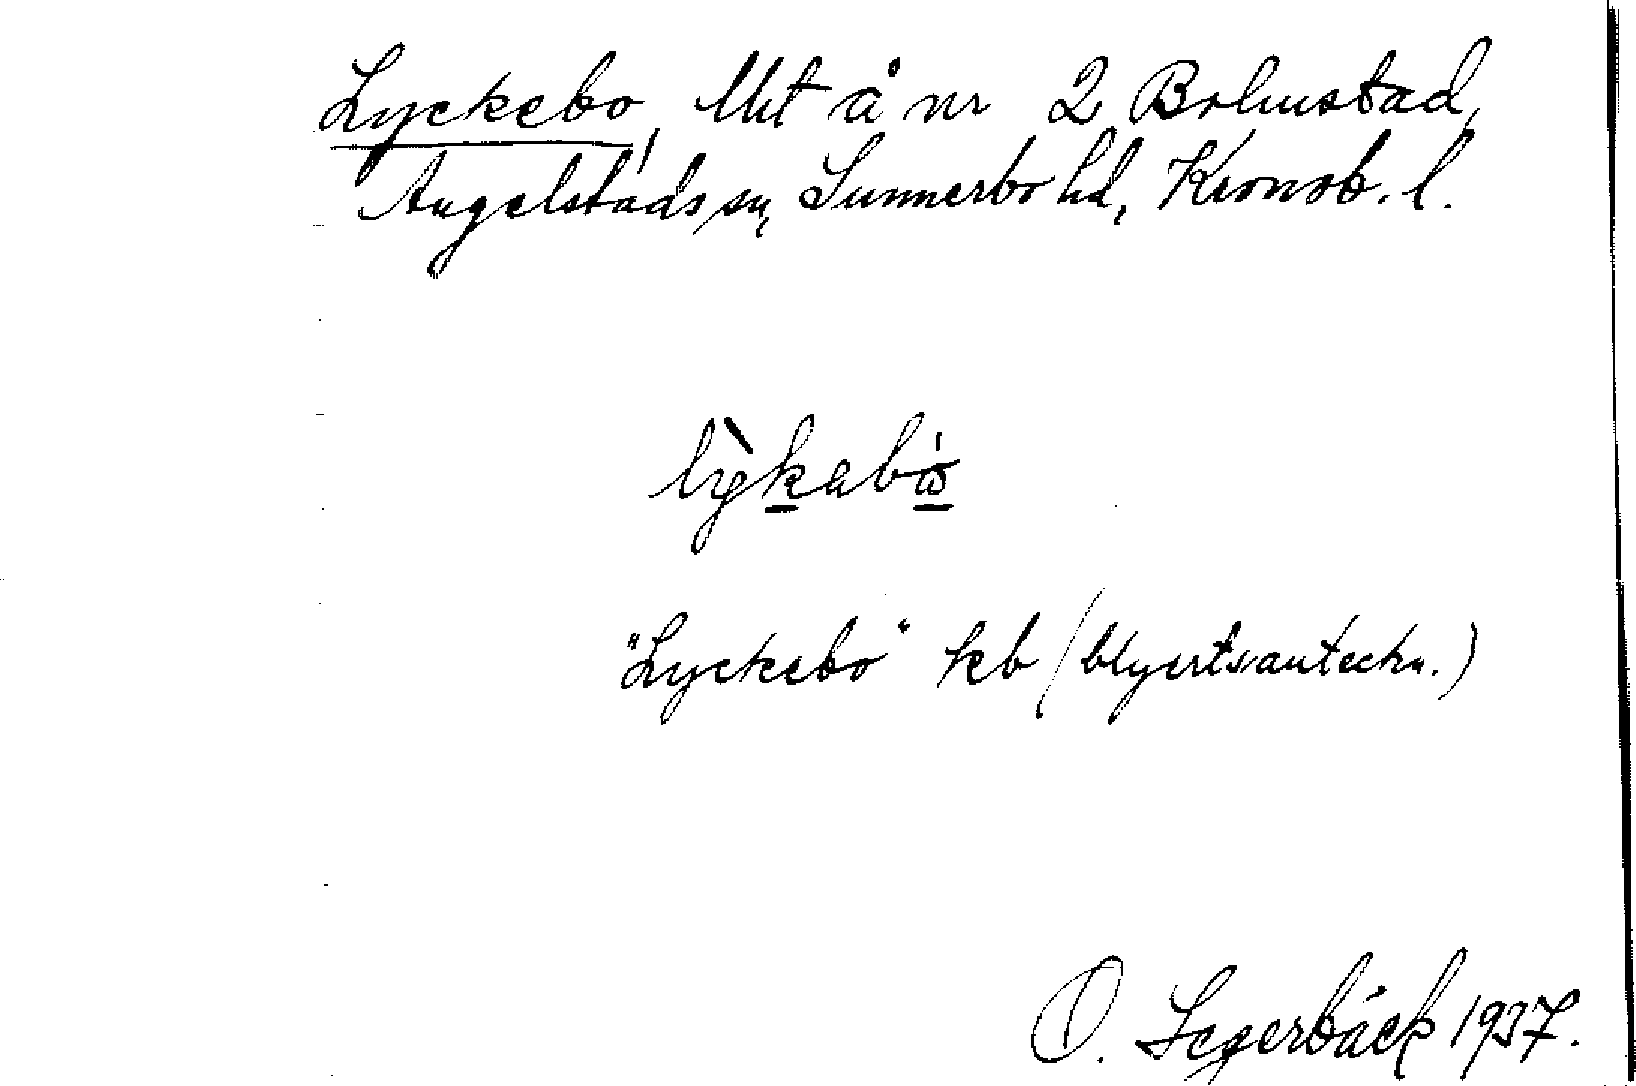 Lyckebo, Uht å nr 2 Bolmstad,
Angelstads sn, Sunnerbo hd, Kronob. l.
lỳkabó
"Lyckebo" kb (blyertsanteckn.)
O. Segerbäck 1937.